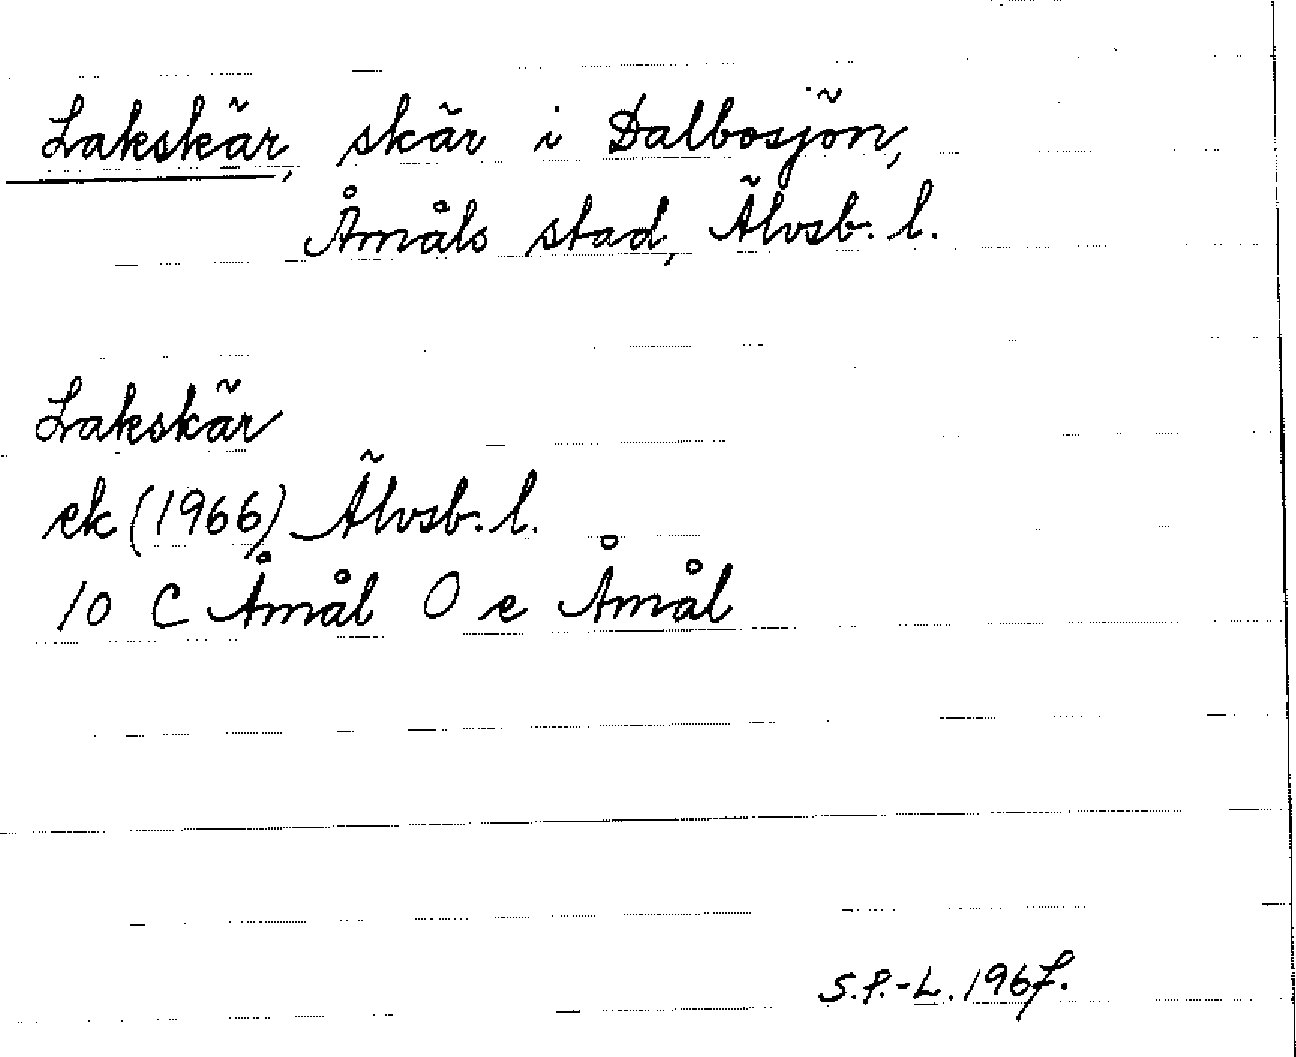 Lakskär, skär i Dalbosjön,
Åmåls stad, Älvsb. l.
Lakskär
ek (1966) Älvsb. l.
10 C Åmål O e Åmål
S.P.-L. 1967.